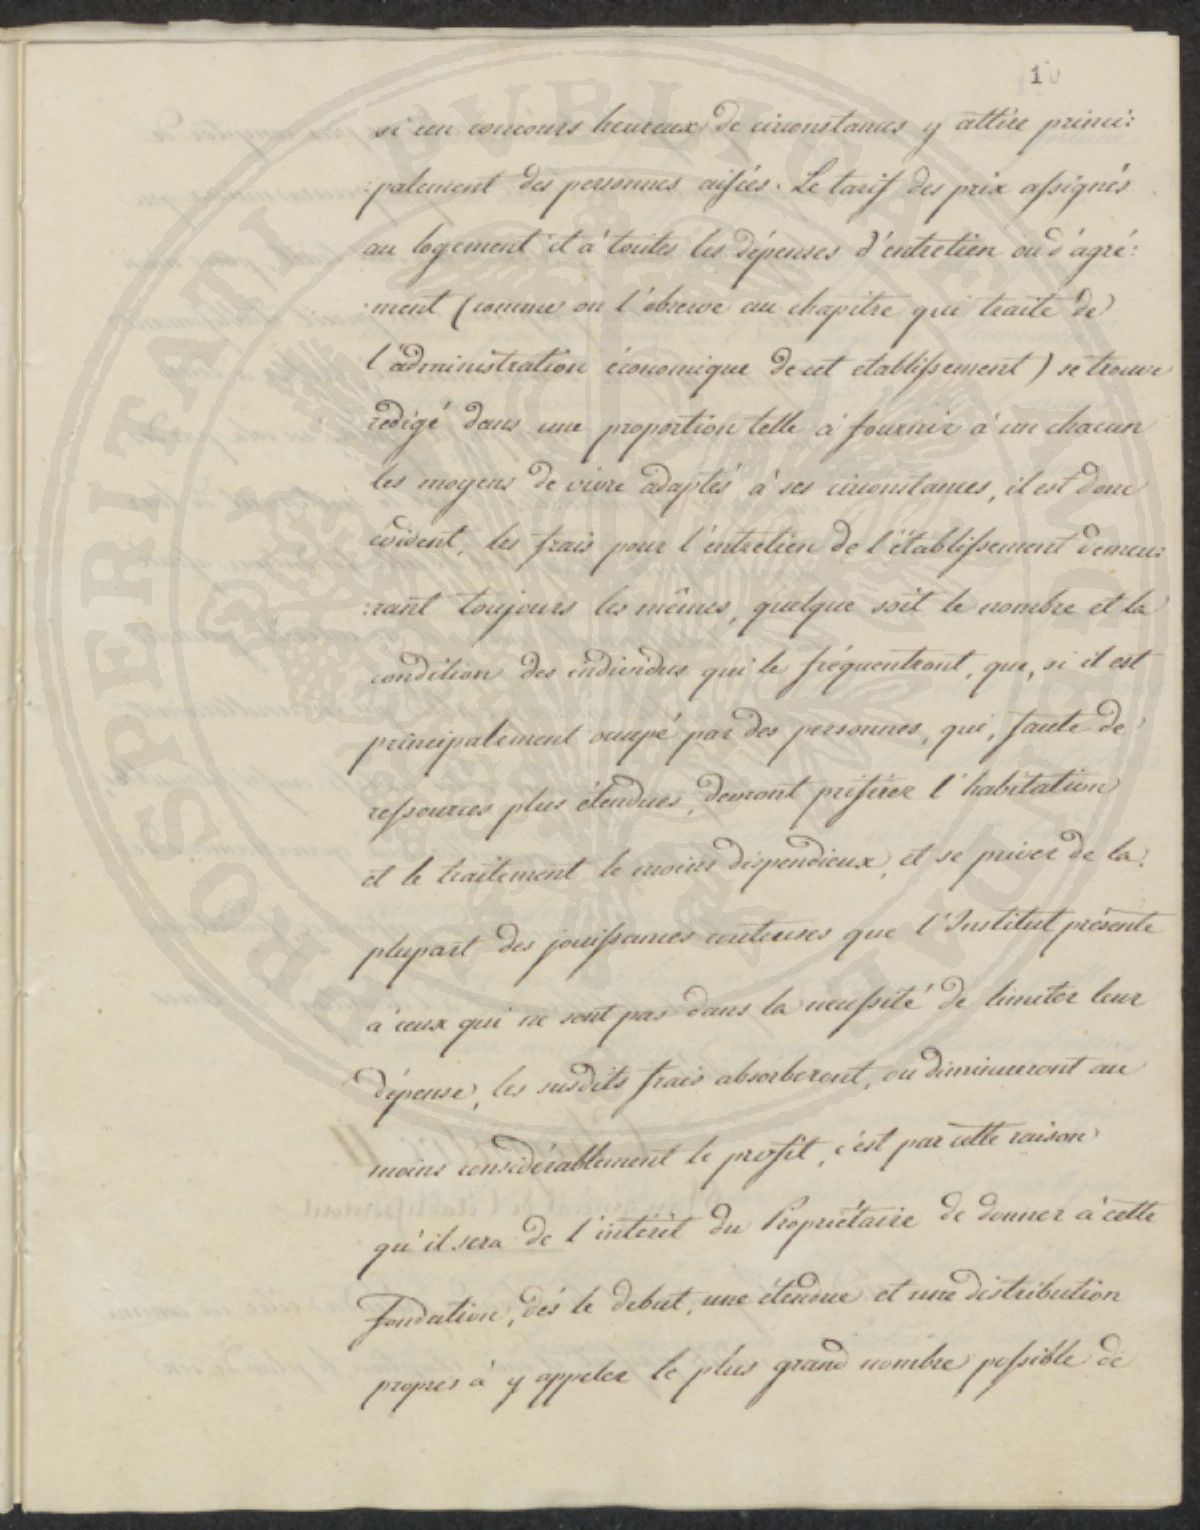 10
si un concours heureux de circonstances y attire princi:
:palement des personnes aisées. Le tarif des prix assignés
au logement et à toutes les dépenses d'entretien ou d'agré:
:ment (comme on l'observe au chapitre qui traite de
l'administration économique de cet etablissement) se trouve
redigé dans une proportion telle à fournir à un chacun
les moyens de vivre adaptés à ses circonstances, il est donc
évident, les frais pour l'entretien de l'établissement demeu:
:rant toujours les mêmes, quelque soit le nombre et la
condition des individus qui le fréquentront, que, si il est
principalement occupé par des personnes, qui, faute de
ressources plus étendues, devront préférer l'habitation
et le traitement le moins dispendieux, et se priver de la
plupart des jouissances couteuses que l'Institut présente
à ceux qui ne sont pas dans la necessité de limiter leur
dépense, les susdits frais absorberont, ou diminueront au
moins considérablement le profit, c'est par cette raison
qu'il sera de l'intérêt du Propriétaire de donner à cette
fondation, dès le debut, une étendue et une distribution
propres à y appeler le plus grand nombre possible de
PROSPERITATI PUBLICAE